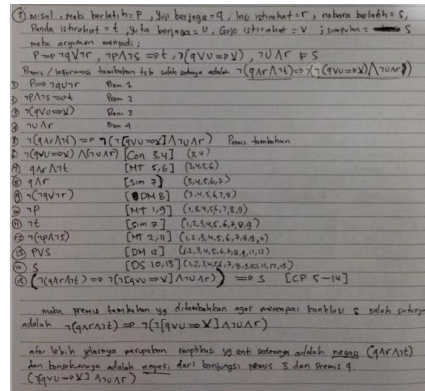 ① misal, Maki berlatih = P, Yuji berjaga = q, Ino istirahat = r, nobara berlatih = s,
Panda istirahat = t, Yuta berjaga = U, Gojo istirahat = V ; simpulan = S
maka argumen menjadi ;
P => ¬q∨¬r, ¬p∧¬s => t, ¬(q∨u => v), ¬u∧r ⊨ S
Premis / informasi tambahan tsb salah satunya adalah ¬(q∧r∧¬t) => ¬(¬(q∨u=>v)∧¬u∧r)
① P => ¬q∨¬r Prem 1
② ¬p∧¬s => t Prem 2
③ ¬(q∨u=>v) Prem 3
④ ¬u∧r Prem 4
⑤ ¬(q∧r∧¬t) => ¬(¬[q∨u=>v]∧¬u∧r) Premis tambahan
⑥ ¬(q∨u=>v)∧(¬u∧r) [Con 3,4] (3,4)
⑦ q∧r∧¬t [MT 5,6] (3,4,5,6)
⑧ q∧r [Sim 7] (3,4,5,6,7)
⑨ ¬(¬q∨¬r) [DM 8] (3,4,5,6,7,8)
⑩ ¬p [MT 1,9] (1,3,4,5,6,7,8,9)
⑪ ¬t [Sim 7] (1,2,3,4,5,6,7,8,9)
⑫ ¬(¬p∧¬s) [MT 2,11] (1,2,3,4,5,6,7,8,9,11)
⑬ P∨S [DM 12] (1,2,3,4,5,6,7,8,9,11,12)
⑭ S [DS 10,13] (1,2,3,4,5,6,7,8,9,10,11,12,13)
⑮ (¬(q∧r∧¬t) => ¬(¬[q∨u=>v]∧¬u∧r)) => S [CP 5-14]
maka premis tambahan yg ditambahkan agar mencapai konklusi S salah satunya
adalah ¬(q∧r∧¬t) => ¬(¬[q∨u => v]∧¬u∧r)
atau lebih jelasnya merupakan implikasi yg antisedennya adalah negasi (q∧r∧¬t)
dan konsekuennya adalah negasi dari konjungsi premis 3 dan premis 4.
(¬[q∨u => v]∧¬u∧r)